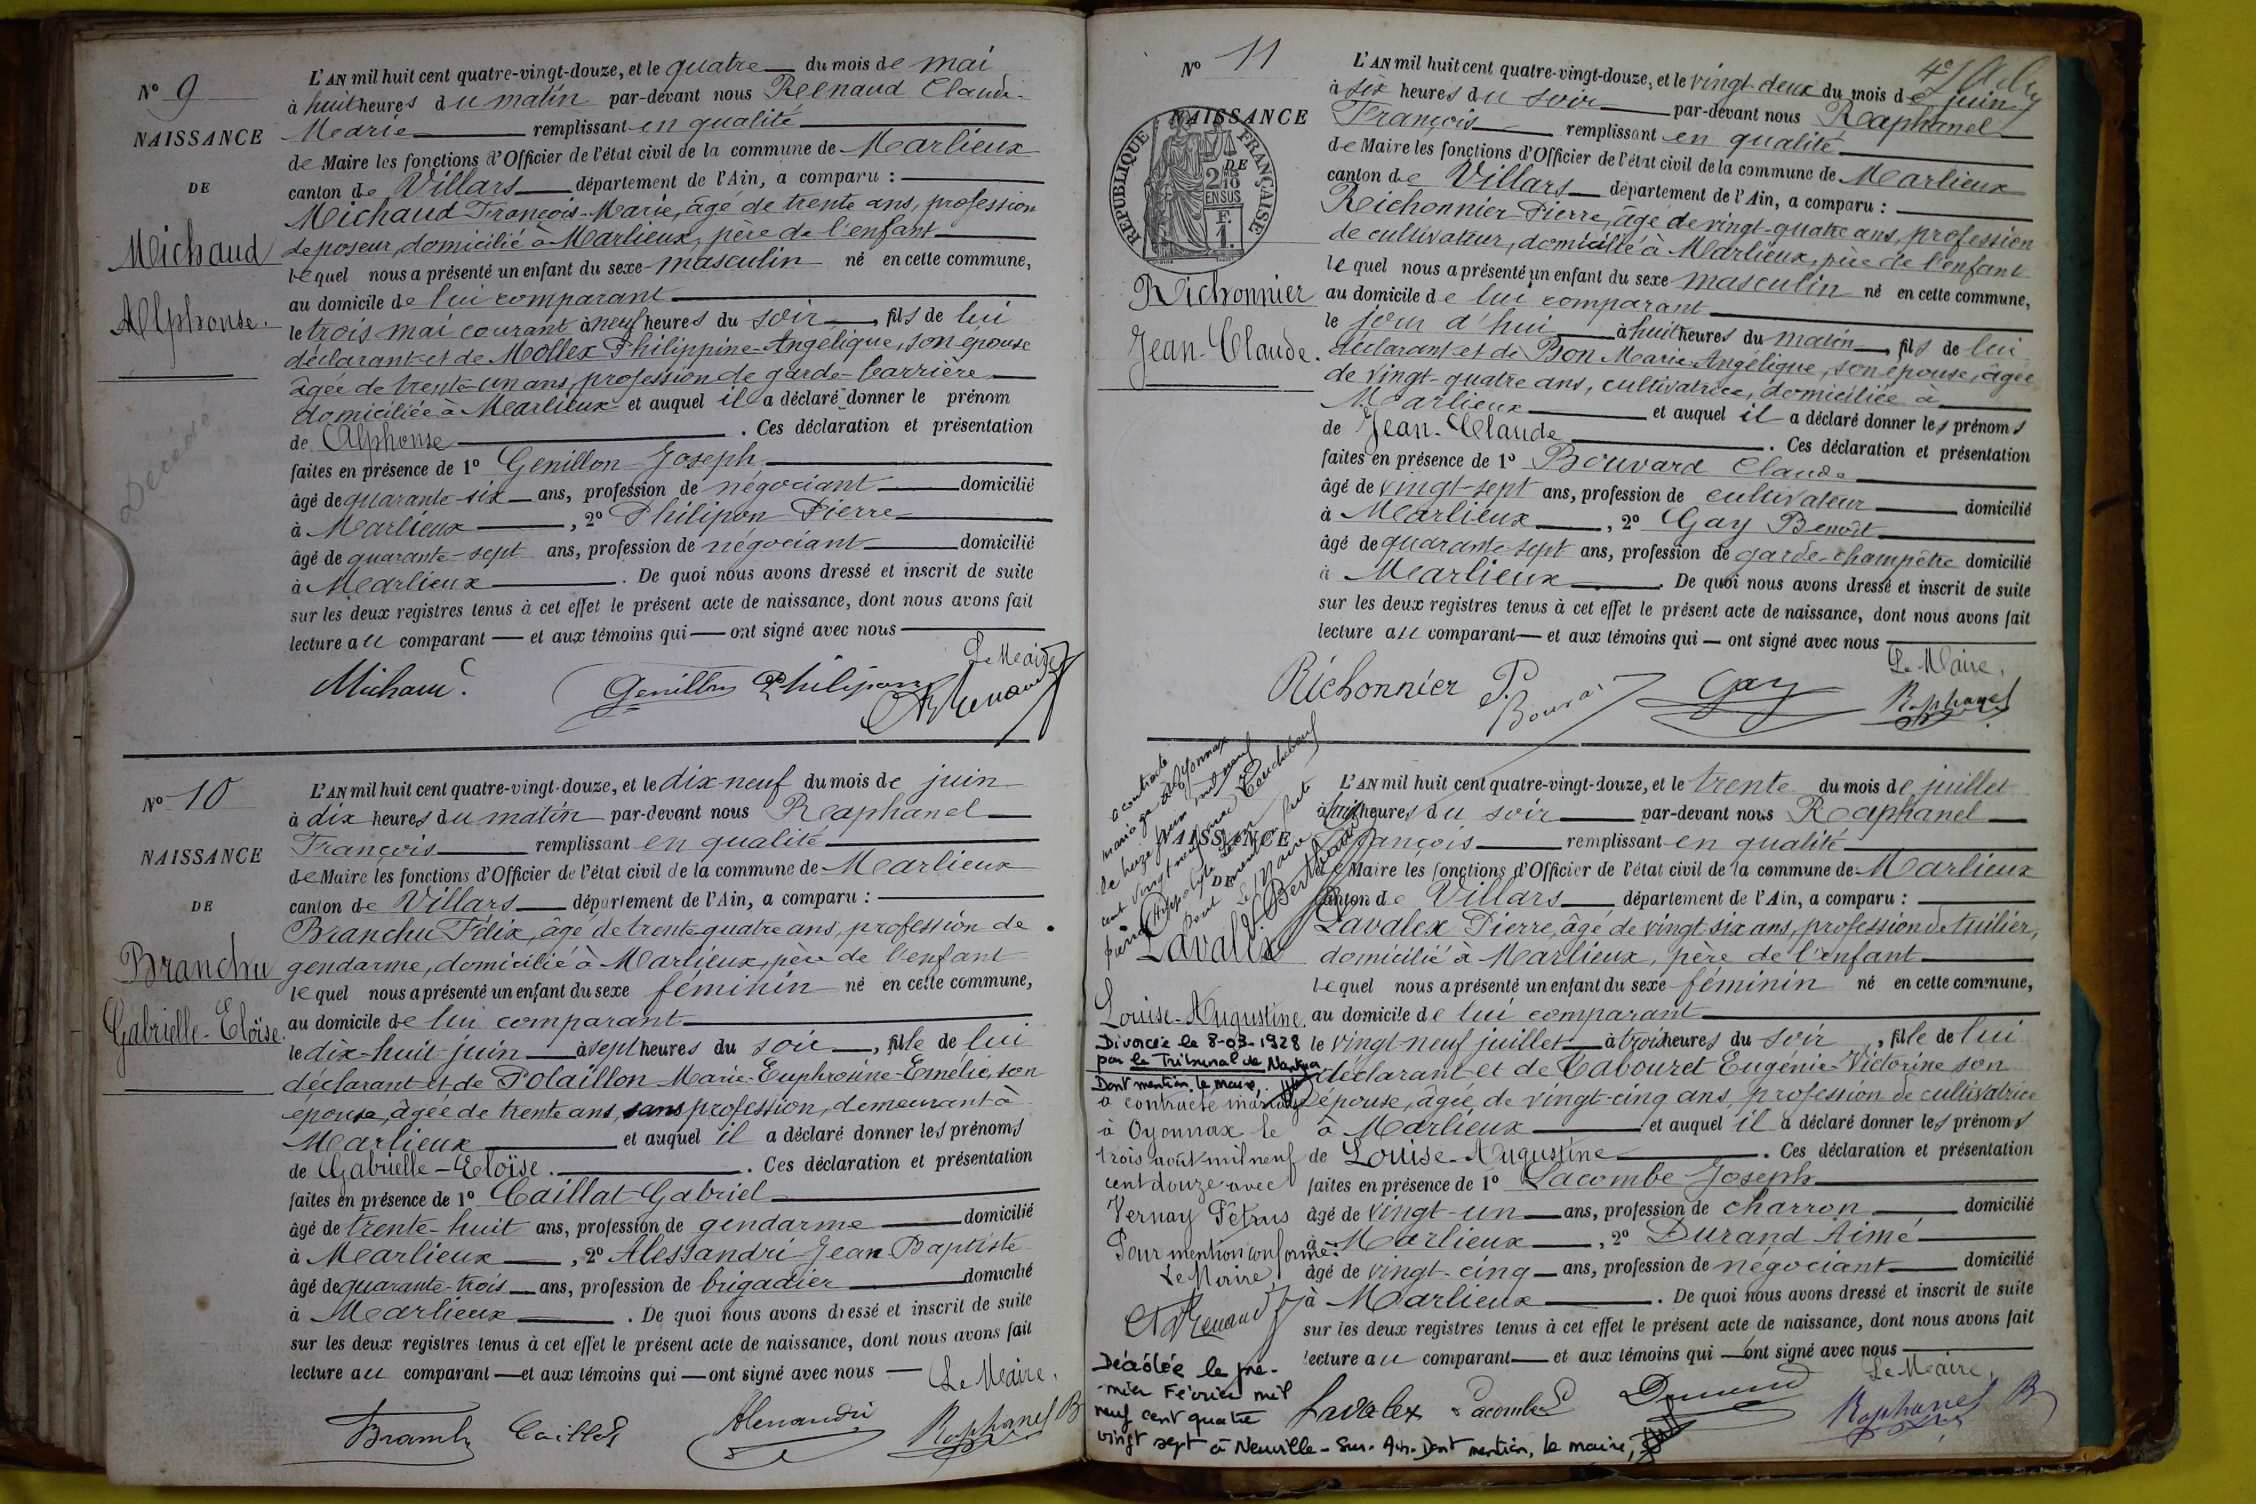 N° 9
NAISSANCE
DE
Michaud
Alphonse.
Décédé
L'AN mil huit cent quatre-vingt-douze, et le quatre du mois de mai
à huit heures du matin par-devant nous Renaud Claude-
Marie remplissant en qualité
de Maire les fonctions d'Officier de l'état civil de la commune de Marlieux
canton de Villars département de l'Ain, a comparu :
Michaud François-Marie, âgé de trente ans, profession
de poseur, domicilié à Marlieux, père de l'enfant
lequel nous a présenté un enfant du sexe masculin né en cette commune,
au domicile de lui comparant
le trois mai courant à neuf heures du soir, fils de lui
déclarant et de Mollex Philippine-Angélique, son épouse
âgée de trente-un ans, profession de garde-barrière
domiciliée à Marlieux et auquel il a déclaré donner le prénom
de Alphonse. Ces déclaration et présentation
faites en présence de 1° Genillon Joseph
âgé de quarante-six ans, profession de négociant domicilié
à Marlieux, 2° Philipon Pierre
âgé de quarante-sept ans, profession de négociant domicilié
à Marlieux. De quoi nous avons dressé et inscrit de suite
sur les deux registres tenus à cet effet le présent acte de naissance, dont nous avons fait
lecture au comparant et aux témoins qui ont signé avec nous
Le Maire
Michaud Genillon Philipon Renaud
N° 10
NAISSANCE
DE
Branchu
Gabrielle-Eloïse.
L'AN mil huit cent quatre-vingt-douze, et le dix-neuf du mois de juin
à dix heures du matin par-devant nous Raphanel
François remplissant en qualité
de Maire les fonctions d'Officier de l'état civil de la commune de Marlieux
canton de Villars département de l'Ain, a comparu :
Branchu Félix, âgé de trente-quatre ans, profession de
gendarme, domicilié à Marlieux, père de l'enfant
lequel nous a présenté un enfant du sexe féminin né en cette commune,
au domicile de lui comparant
le dix-huit juin à sept heures du soir, fille de lui
déclarant et de Polaillon Marie-Euphrosine-Emélie, son
épouse, âgée de trente ans, sans profession, demeurant à
Marlieux et auquel il a déclaré donner les prénoms
de Gabrielle-Eloïse. Ces déclaration et présentation
faites en présence de 1° Caillat Gabriel
âgé de trente-huit ans, profession de gendarme domicilié
à Marlieux, 2° Alessandri Jean Baptiste
âgé de quarante-trois ans, profession de brigadier domicilié
à Marlieux. De quoi nous avons dressé et inscrit de suite
sur les deux registres tenus à cet effet le présent acte de naissance, dont nous avons fait
lecture au comparant et aux témoins qui ont signé avec nous
Le Maire.
Branchu Caillat Alessandri Raphanel
N° 11
NAISSANCE
DE
REPUBLIQUE FRANÇAISE
2/10 EN SUS
F. 1.
Richonnier
Jean-Claude.
L'AN mil huit cent quatre-vingt-douze, et le vingt-deux du mois de juin
à six heures du soir par-devant nous Raphanel
François remplissant en qualité
de Maire les fonctions d'Officier de l'état civil de la commune de Marlieux
canton de Villars département de l'Ain, a comparu :
Richonnier Pierre, âgé de vingt-quatre ans, profession
de cultivateur, domicilié à Marlieux, père de l'enfant
lequel nous a présenté un enfant du sexe masculin né en cette commune,
au domicile de lui comparant
le jour d'hui à huit heures du matin, fils de lui
déclarant et de Bon Marie-Angélique, son épouse, âgée
de vingt-quatre ans, cultivatrice, domiciliée à
Marlieux et auquel il a déclaré donner les prénoms
de Jean-Claude. Ces déclaration et présentation
faites en présence de 1° Bouvard Claude
âgé de vingt-sept ans, profession de cultivateur domicilié
à Marlieux, 2° Gay Benoît
âgé de quarante-sept ans, profession de garde-champêtre domicilié
à Marlieux. De quoi nous avons dressé et inscrit de suite
sur les deux registres tenus à cet effet le présent acte de naissance, dont nous avons fait
lecture au comparant et aux témoins qui ont signé avec nous
Le Maire.
Richonnier P. Bouvard Gay Raphanel
a contracté
mariage à Oyonnax
le treize juin mil neuf
cent vingt neuf avec
NAISSANCE
DE
Lavalex
Louise-Augustine.
Divorcée le 8-03-1928
par le Tribunal de Nantua
Dont mention, le maire,
a contracté mariage
à Oyonnax le
trois août mil neuf
cent douze avec
Vernay Pétrus
Pour mention conforme.
Le Maire,
Renaud
Décédée le pre-
-mier Février mil
neuf cent quatre
vingt sept à Neuville-sur-Ain. Dont mention, le maire,
L'AN mil huit cent quatre-vingt-douze, et le trente du mois de juillet
à heures du soir par-devant nous Raphanel
François remplissant en qualité
de Maire les fonctions d'Officier de l'état civil de la commune de Marlieux
canton de Villars département de l'Ain, a comparu :
Lavalex Pierre, âgé de vingt-six ans, profession de tuilier,
domicilié à Marlieux, père de l'enfant
lequel nous a présenté un enfant du sexe féminin né en cette commune,
au domicile de lui comparant
le vingt-neuf juillet à trois heures du soir, fille de lui
déclarant et de Tabouret Eugénie-Victorine son
épouse, âgée de vingt-cinq ans, profession de cultivatrice
à Marlieux et auquel il a déclaré donner les prénoms
de Louise-Augustine. Ces déclaration et présentation
faites en présence de 1° Lacombe Joseph
âgé de vingt-un ans, profession de charron domicilié
à Marlieux, 2° Durand Aimé
âgé de vingt-cinq ans, profession de négociant domicilié
à Marlieux. De quoi nous avons dressé et inscrit de suite
sur les deux registres tenus à cet effet le présent acte de naissance, dont nous avons fait
lecture au comparant et aux témoins qui ont signé avec nous
Le Maire,
Lavalex Lacombe Durand Raphanel